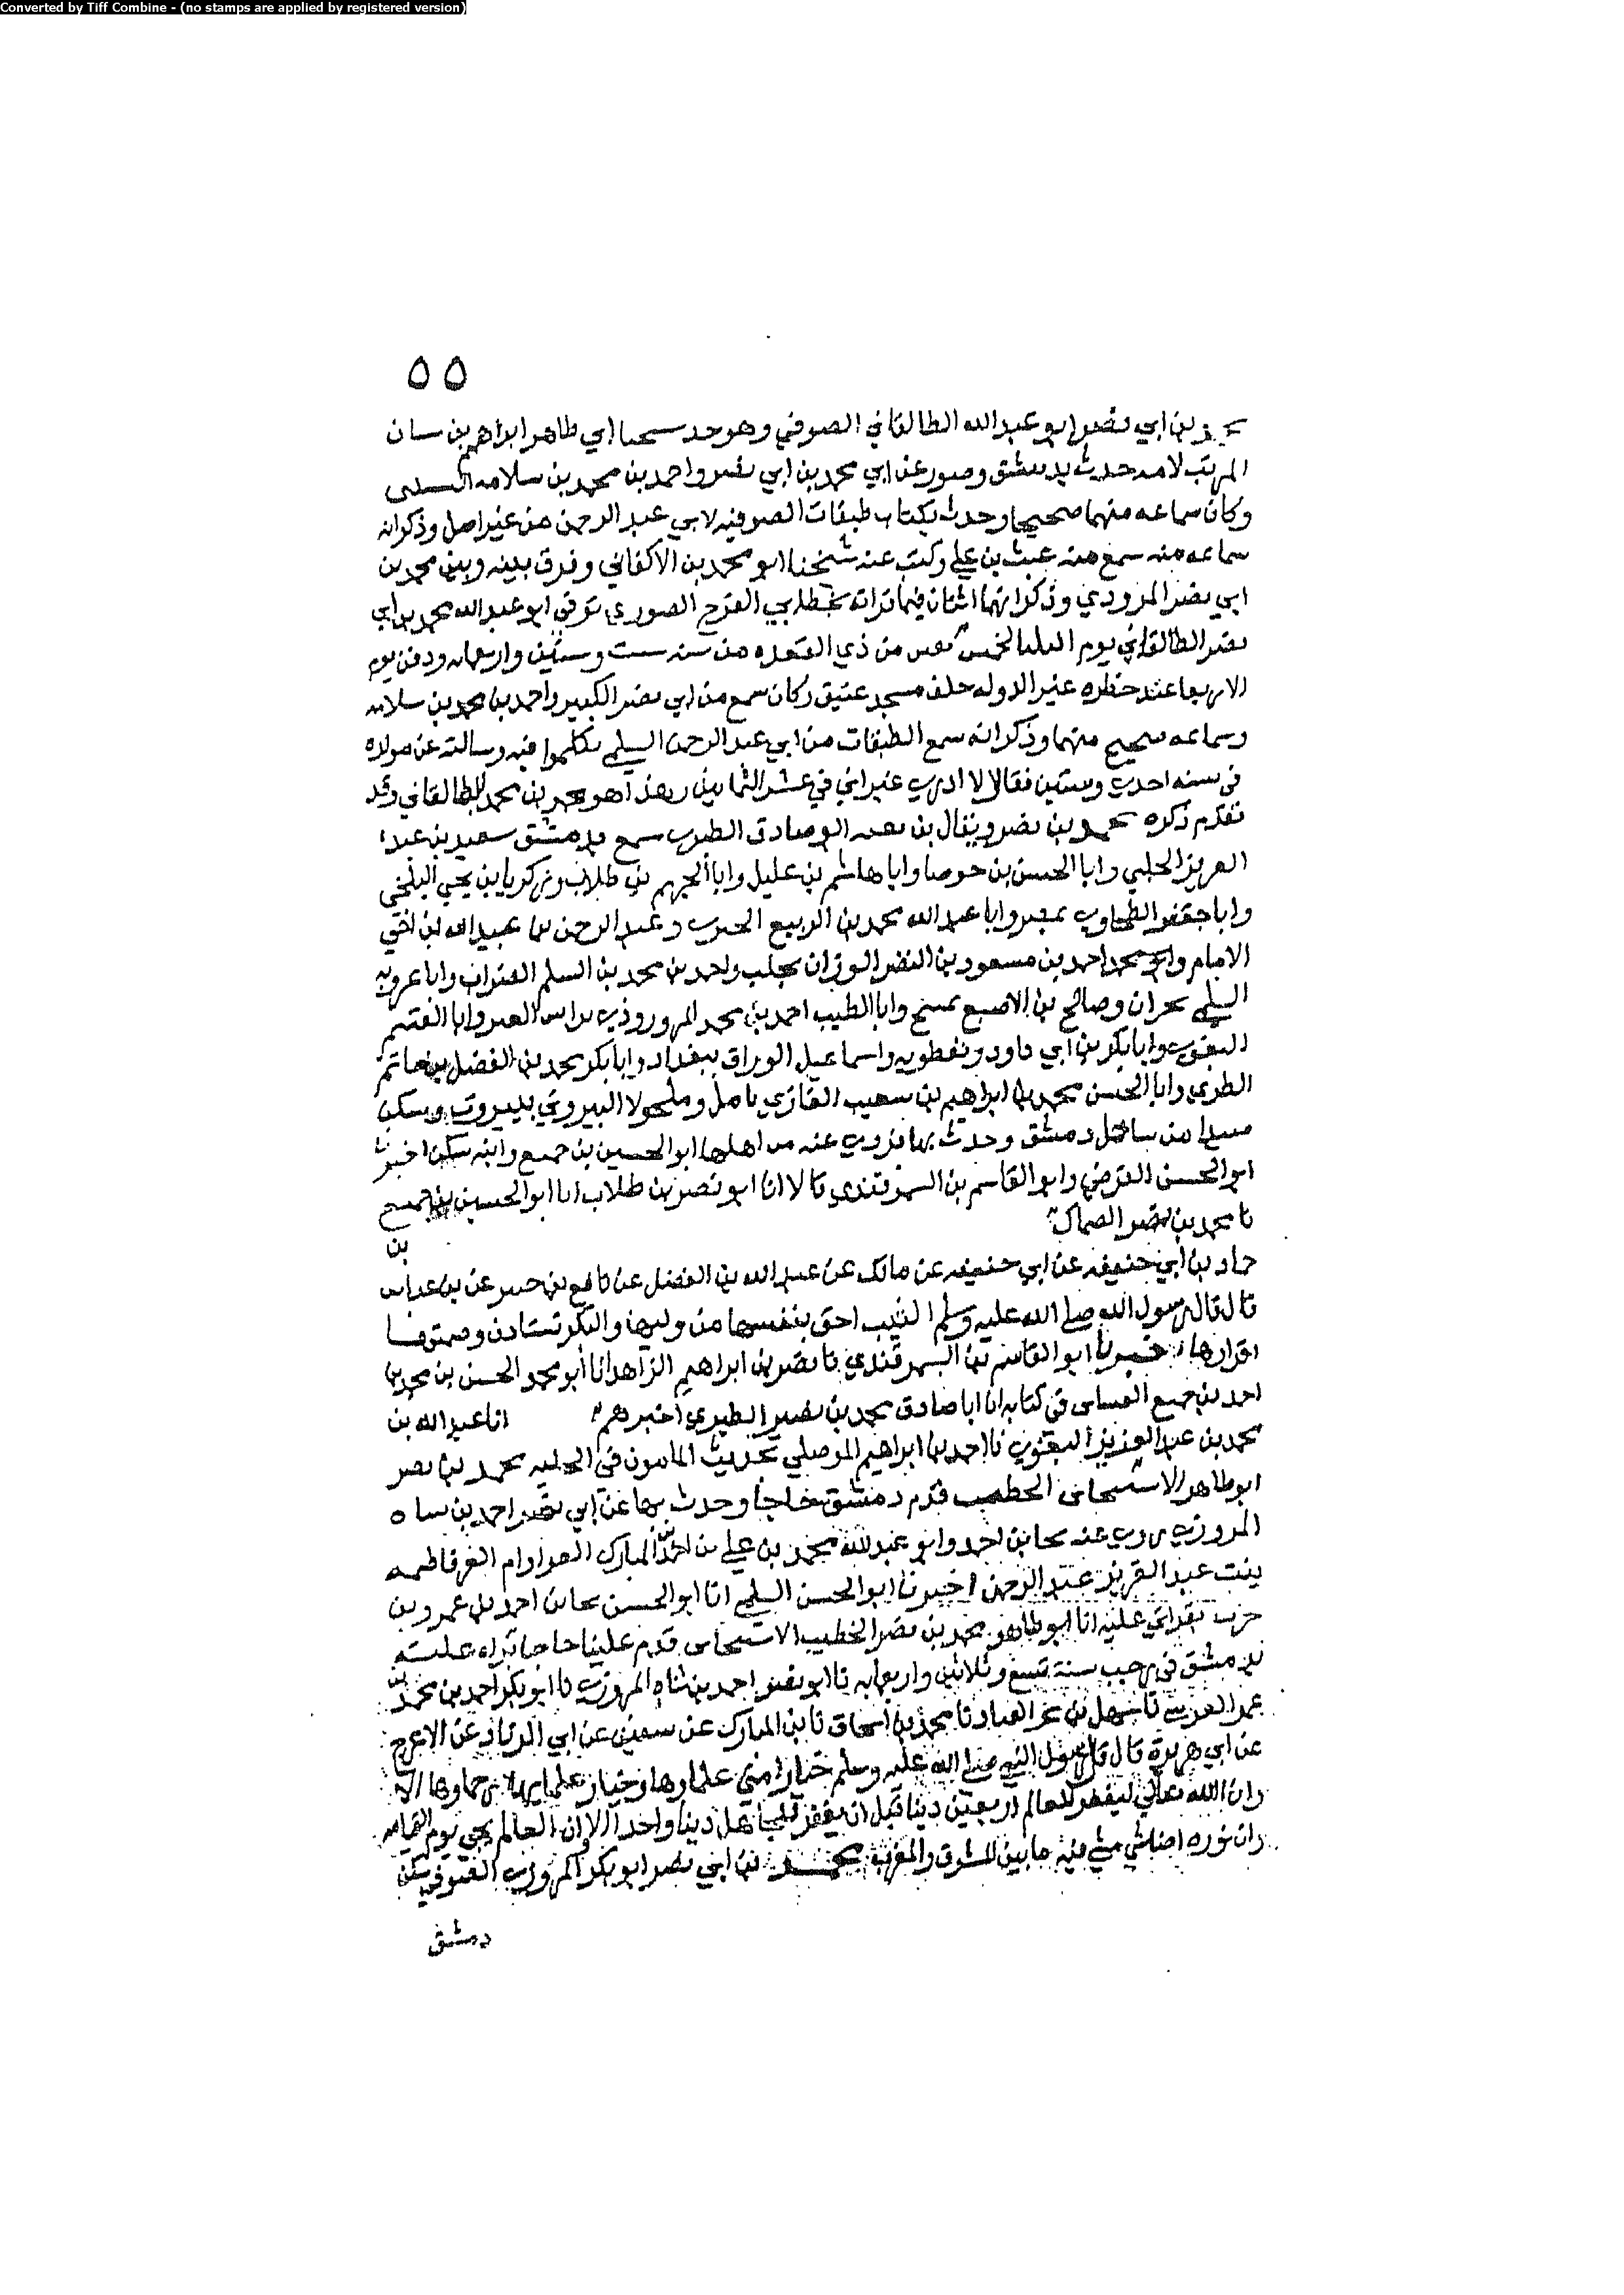 Converted by Tiff Combine - (no stamps are applied by registered version)
٥٥
بن ابي نصر ابو عبد الله الطالقاني الصوفي وهو جد ابي طاهر ابراهيم بن
لامه حدث بدمشق وصور عن ابي محمد بن ابي نصر واحمد بن محمد بن سلامه
وكان سماعه منهما صحيحا وحدث بكتاب طبقات الصوفيه لابي عبد الرحمن من غير اصل وذكر انه
سماعه منه سمع منه غيث بن علي وكتب عنه شيخنا ابو محمد بن الاكفاني وفرق بينه وبين محمد بن
ابي نصر المرودي وذكر انهما اثنان فيما قراته بخط ابي الفرج الصوري توفي ابو عبد الله محمد بن ابي
نصر الطالقاني يوم من ذي القعده من سنه ست وستين واربعمايه ودفن يوم
الاربعا عند الدوله خلف مسجد عتيق وكان سمع من ابي نصر الكبير واحمد بن محمد بن سلامه
وسماعه صحيح منهما وذكر انه سمع الطبقات من ابي عبد الرحمن السلمي تكلموا فيه وسالته عن مولده
في سنه احدى وستين فقال لا ادري غير اني في عشر الثمانين محمد بن محمد الطالقاني وقد
تقدم ذكره محمد بن نصر ويقال بن ابو صادق الطبري سمع بدمشق سعيد بن عبد
العزيز الحلبي وابا الحسن بن جوصا وابا هاشم بن عليل وابا الجهم بن طلاب وزكريا بن يحي البلخي
وابا جعفر الطحاوي بمصر وابا عبد الله محمد بن الربيع وعبد الرحمن عبيد الله بن اخي
الامام محمد احمد بن مسعود بن النضر الوزان بحلب واحمد بن محمد بن السلم وابا عروبه
السلمي بحران وصالح بن الاصبغ بمنبج وابا الطيب احمد بن محمد المروروذي براس العين وابا القسم
البغوي وابا بكر بن ابي داود ونفطويه واسماعيل الوراق ببغداد وابا بكر محمد بن الفضل بن حاتم
الطبري وابا الحسن محمد بن ابراهيم بن شعيب الغازي بامل ومكحولا البيروتي ببيروت وسكن
من ساحل دمشق وحدث بها روى عنه من اهلها ابو الحسين بن جميع وابنه سكن اخبرنا
ابو الحسن الفرضي وابو القاسم بن السمرقندي قالا انا ابو نصر بن طلاب انا ابو الحسين بن جميع
نا محمد بن نصر
بن
حماد بن ابي حنيفه عن ابي حنيفه عن مالك عن عبد الله بن الفضل عن نافع بن جبير عن بن عباس
قال قال رسول الله صلى الله عليه وسلم الثيب احق بنفسها من وليها والبكر تستاذن وصمتها
اقرارها اخبرنا ابو القاسم بن السمرقندي نا نصر بن ابراهيم الزاهد انا ابو محمد الحسن بن محمد بن
احمد بن جميع الغساني في كتابه انا ابا صادق محمد بن نصر الطبري اخبرهم انا عبد الله بن
محمد بن عبد العزيز البغوي نا احمد بن ابراهيم الموصلي بحديث المامون في الحلبه محمد بن نصر
ابو طاهر الخطيب قدم دمشق حاجا وحدث بها عن ابي نصر احمد بن شاه
المروزي روى عنه نجا بن احمد وابو عبد الله محمد بن علي بن احمد المبارك وام العز فاطمه
بنت عبد العزيز عبد الرحمن اخبرنا ابو الحسن السلمي انا ابو الحسن نجا بن احمد بن عمرو بن
حرب بقراتي عليه انا ابو طاهر محمد بن نصر الخطيب قدم علينا حاجا قراه عليه
بدمشق في رجب سنة تسع وثلاثين واربعمايه نا ابو نصر احمد بن شاه المروزي نا ابو بكر احمد بن محمد بن
نا سهل بن نا محمد بن اسحاق نا بن المبارك عن سفين عن ابي الزناد عن الاعرج
عن ابي هريرة قال قال رسول الله صلى الله عليه وسلم خيار امتي علماوها وخيار علمايها رحماوها الا
وان الله تعالى ليغفر للعالم اربعين ذنبا قبل ان يغفر للجاهل ذنبا واحدا الا وان العالم يجي يوم القيامه
وان نوره اضا يمشي فيه ما بين المشرق والمغرب محمد بن ابي نصر ابو بكر المروزي الصوفي سكن
دمشق